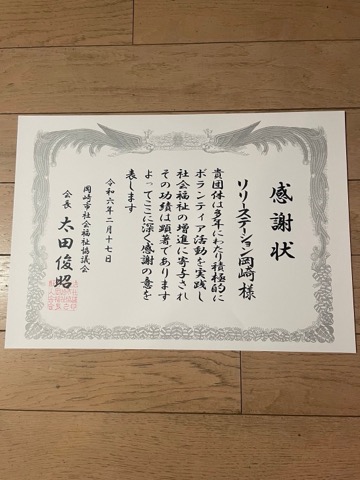 感謝状
リリーステーション岡崎 様
貴団体は多年にわたり積極的に
ボランティア活動を実践し
社会福祉の増進に寄与され
その功績は顕著であります
よってここに深く感謝の意を
表します
令和六年二月十七日
岡崎市社会福祉協議会
会長 太田俊昭